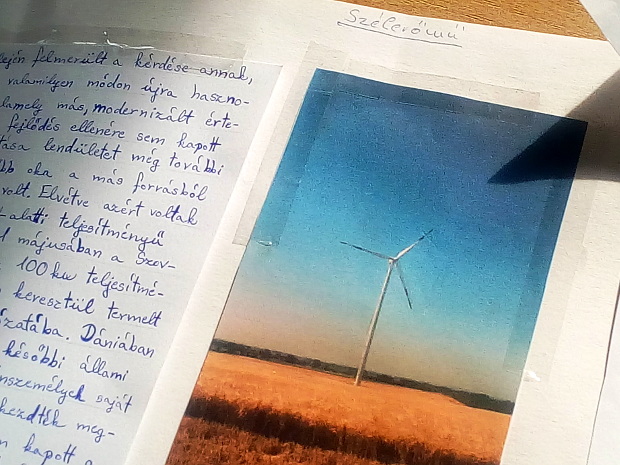 Szélerőmű
ején felmerült a kérdése annak,
valamilyen módon újra haszno-
lamely más, modernizált érte-
fejlődés ellenére sem kapott
tása lendületet még további
bb oka a más forrásból
volt. Elvétve azért voltak
alatti teljesítményű
májusában a Szov-
100 kw teljesítmé-
keresztül termelt
ózatába. Dániában
későbbi állami
nszemélyek saját
kezdték meg-
n kapott a